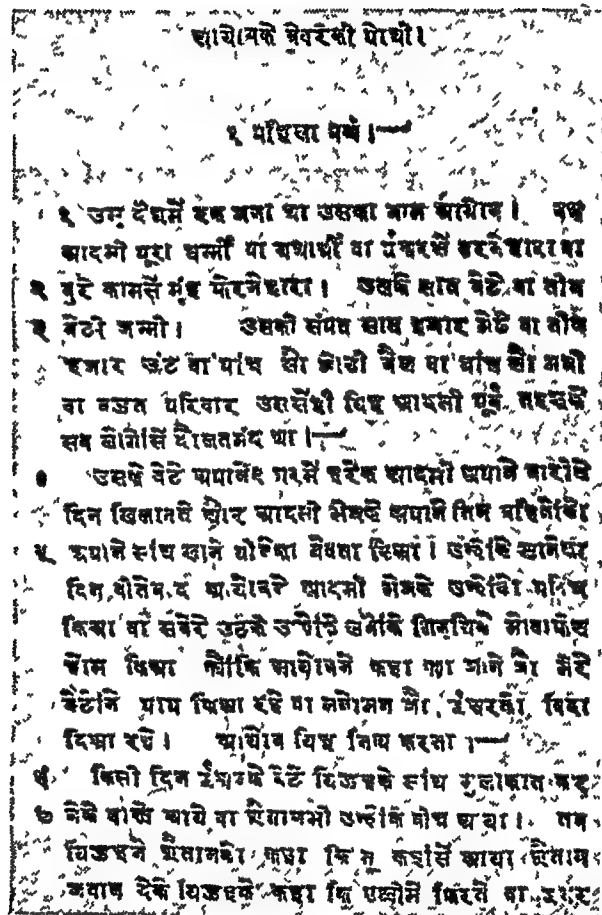 आयोबके खेवरकी पोथी।
१ पहिला पर्ब्ब।
१ उस देशमें एक जना था उसका नाम आयोब। वह
आदमी पूरा धर्म्मी वा यथार्थी वा ईश्वरसें डरनेहारा वा
२ बुरे कामसें मुंह फेरनेहारा। उसके सात बेटे वा तीन
३ बेटी जन्मी। उसकी संपत सात हजार भेटे वा तीन
हजार ऊंट वा पांच सौ जोडी बैल वा पांच सौ गधी
वा बड़त परिवार उससेंभी यिह आदमी पूर्व तरफके
सब लोगोंसें दौलतमंद था।
४ उसके बेटे अपाने घरमें हरेक आदमी अपाने बारीके
दिन खिलानते और आदमी भेजके अपाने तिन बहिनोंको
५ अपाने सांथ खाने पीनेका नेवता किया। उन्होंके खानेका
दिन बीतेपर आयोबने आदमी भेजके उन्होंको पवित्र
किया वा सबेरे उठके उन्होंके सबोंके गिनतिके मोवाफिक
होम किया क्योंकि आयोबने कहा क्या जाने जो मेरे
बेटोंने पाप किया रहे वा मनोमन जो ईश्वरको बिदा
किया रहे। आयोब यिह नित्य करता।
६ किसी दिन ईश्वरके बेटे यिहवहके सांथ मुलाकात कर
७ नेके वास्ते आये वा शैतानभी उन्होंके बीच आया। तब
यिहवहने शैतानको कहा कि तू कहांसें आया शैतान
जवाब देके यिहवहको कहा कि पृथ्वीमें फिरते वा